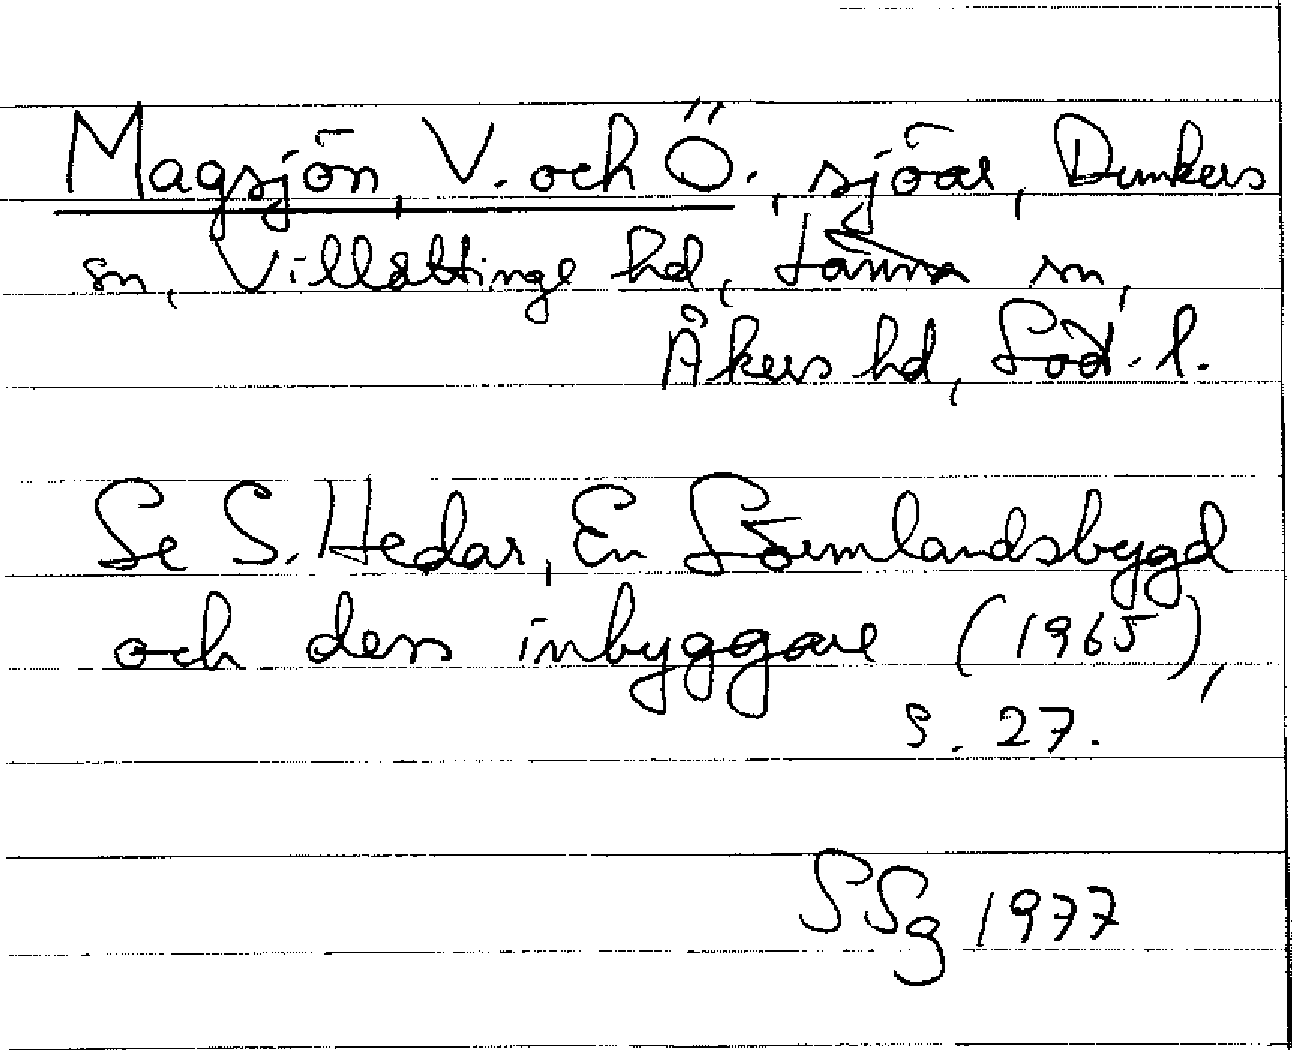 Magsjön, V. och Ö., sjöar, Dunkers
sn, Villåttinge hd, Länna sn,
Åkers hd, Söd. l.
Se S. Hedar, En Sörmlandsbygd
och dess inbyggare (1965),
s. 27.
SSg 1977